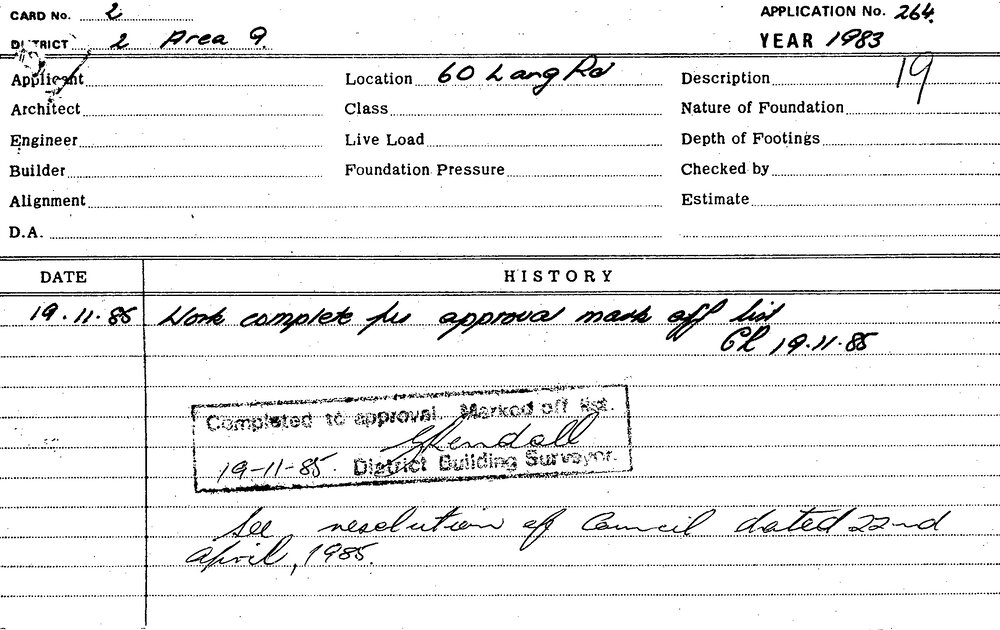 CARD No. 2 APPLICATION No. 264.
DISTRICT 2 Area 9. YEAR 1983
Applicant Location 60 Lang Rd Description 19
Architect Class Nature of Foundation
Engineer Live Load Depth of Footings
Builder Foundation Pressure Checked by
Alignment Estimate
D.A.
DATE HISTORY
19.11.85 Work complete per approval mark off list
19.11.85
Completed to approval. Marked off list.
19-11-85. District Building Surveyor.
See resolution of Council dated 22nd
April, 1985.